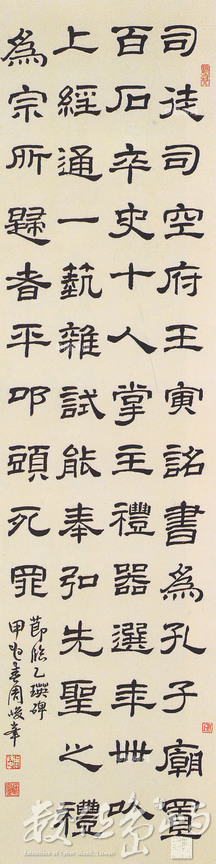 司徒司空府王寅詔書為孔子廟置
百石卒史十人掌主禮器選年卌以
上經通一藝雜試能奉弘先聖之禮
為宗所歸者平叩頭死罪
節臨乙瑛碑
甲春周峻峯
數位島嶼